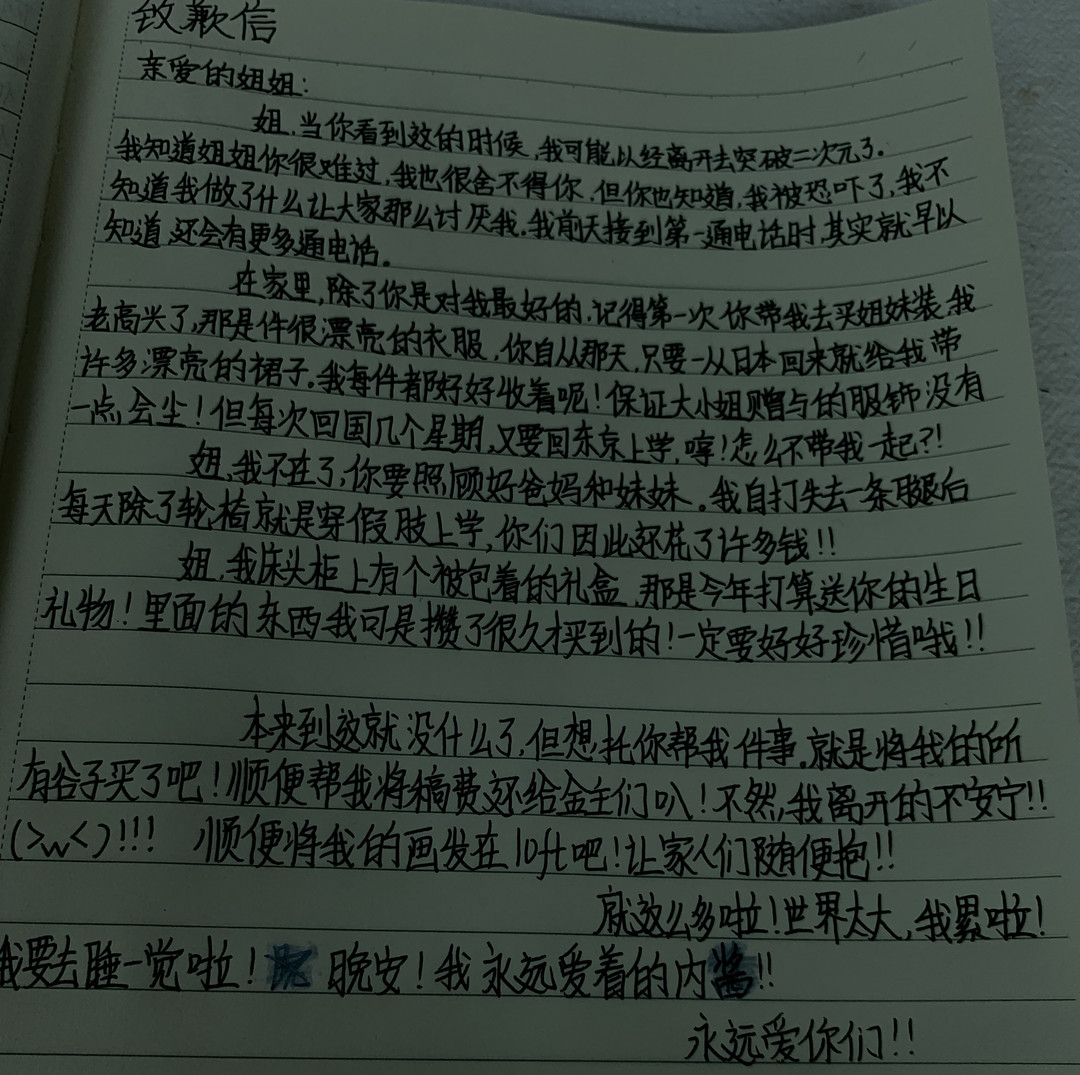 致歉信
亲爱的姐姐：
姐，当你看到这的时候，我可能以经离开去突破二次元了。
我知道姐姐你很难过，我也很舍不得你，但你也知道，我被恐吓了，我不
知道我做了什么让大家那么讨厌我，我前天接到第一通电话时，其实就早以
知道，还会有更多通电话。
在家里，除了你是对我最好的，记得第一次你带我去买姐妹装，我
老高兴了，那是件很漂亮的衣服，你自从那天，只要一从日本回来就给我带
许多漂亮的裙子。我每件都好好收着呢！保证大小姐赠与的服饰没有
一点会尘！但每次回国几个星期，又要回东京上学，哼！怎么不带我一起？！
姐，我不在了，你要照顾好爸妈和妹妹。我自打失去一条腿后
每天除了轮椅就是穿假肢上学，你们因此还花了许多钱！！
姐，我床头柜上有个被包着的礼盒，那是今年打算送你的生日
礼物！里面的东西我可是攒了很久才买到的！一定要好好珍惜哦！！
本来到这就没什么了，但想托你帮我件事。就是将我的所
有谷子买了吧！顺便帮我将稿费还给金主们叭！不然，我离开的不安宁！！
(>w<)!!! 顺便将我的画发在loft吧！让家人们随便抱！！
就这么多啦！世界太大，我累啦！
我要去睡一觉啦！晚安！我永远爱着的内酱！！
永远爱你们！！